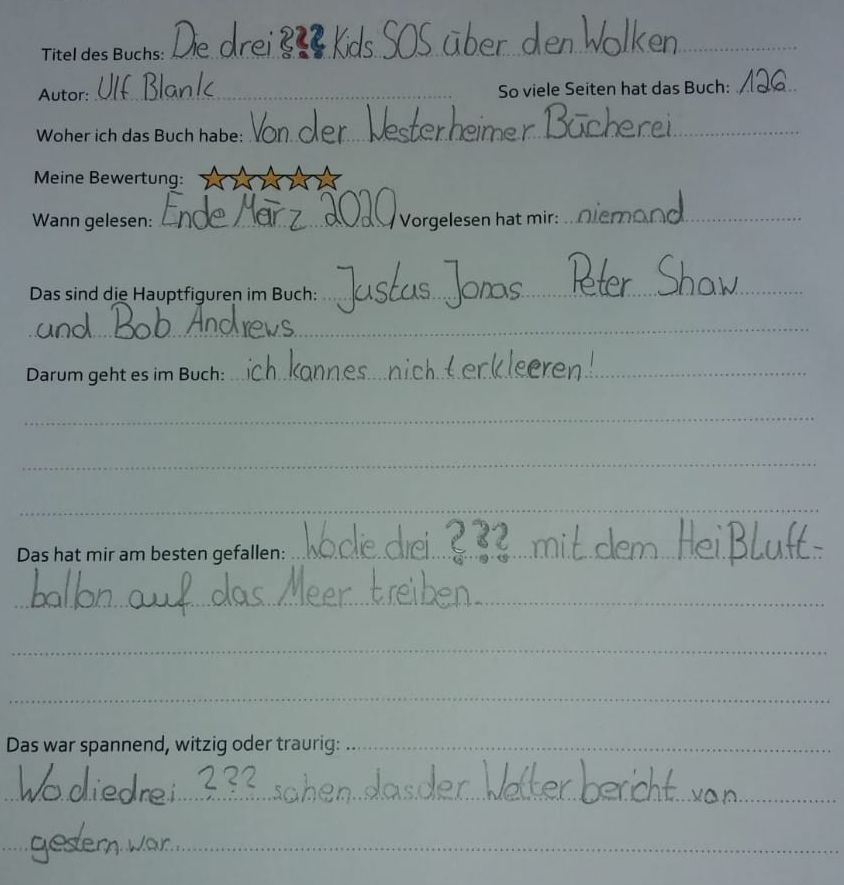 Titel des Buchs: Die drei ??? Kids SOS über den Wolken
Autor: Ulf Blank So viele Seiten hat das Buch: 126
Woher ich das Buch habe: Von der Westerheimer Bücherei
Meine Bewertung:
Wann gelesen: Ende März 2020 Vorgelesen hat mir: niemand
Das sind die Hauptfiguren im Buch: Justus Jonas Peter Shaw
und Bob Andrews
Darum geht es im Buch: ich kannes nicht erkleeren!
Das hat mir am besten gefallen: Wo die drei ??? mit dem Heißluft-
ballon auf das Meer treiben.
Das war spannend, witzig oder traurig:
Wo diedrei ??? sahen dasder Wetterbericht von
gestern war.